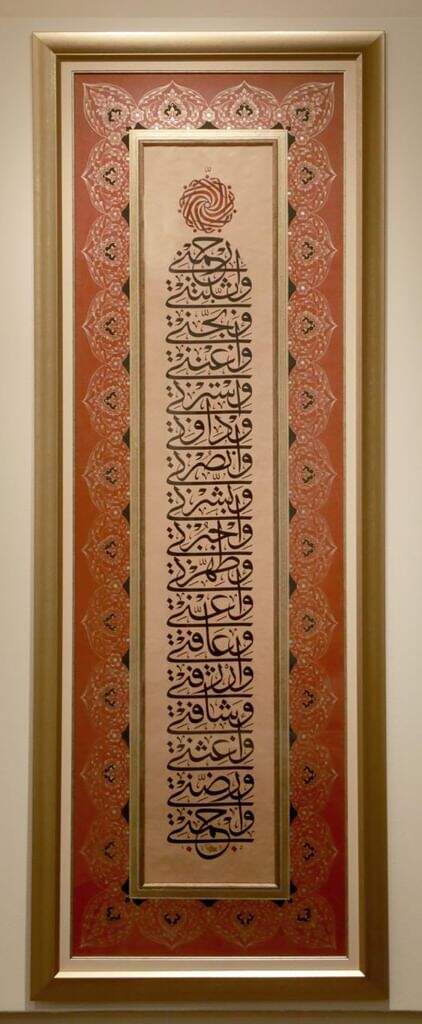 ارحمني
وثبتني
ونجني
واعنني
واسترني
وداوني
وانصرني
وبشرني
واجبرني
وطهرني
وعافني
وارزقني
وشافني
واغثني
ورضني
واحمني